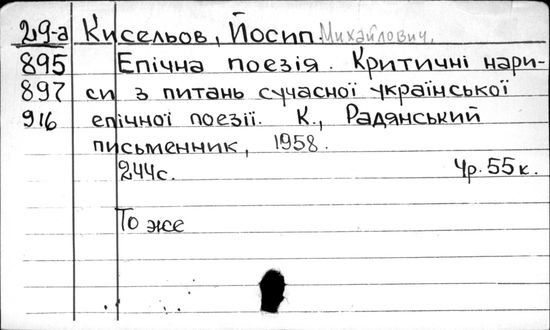 29-а Кисельов, Йосип Михайлович.
895 Епічна поезія. Критичні нари-
897 си з питань сучасної української
916 епічної поезії. К., Радянський
письменник, 1958.
244с. 4р. 55к.
То же